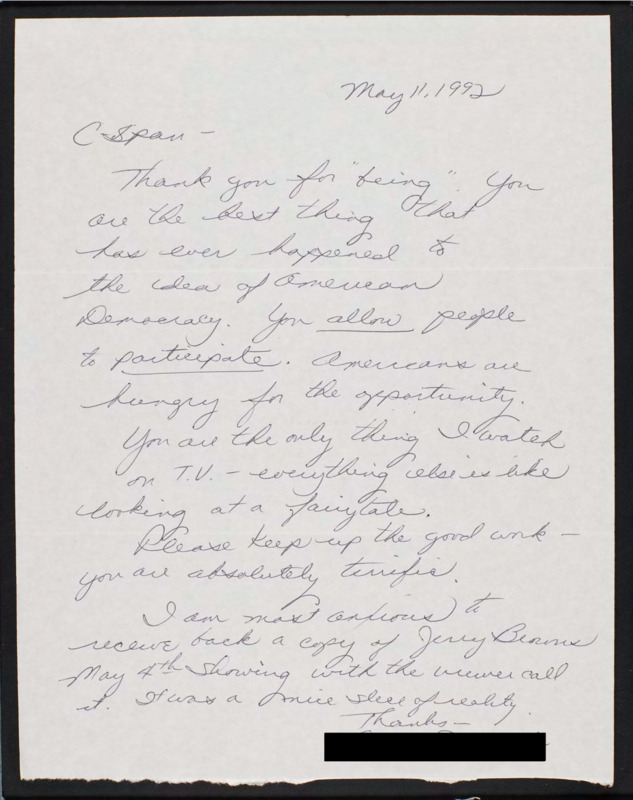 May 11, 1992
C-Span -
Thank you for "being". You
are the best thing that
has ever happened to
the idea of American
Democracy. You allow people
to participate. Americans are
hungry for the opportunity.
You are the only thing I watch
on T.V. - everything else is like
looking at a fairytale.
Please keep up the good work -
you are absolutely terrific.
I am most anxious to
receive back a copy of Jerry Browns
May 4th showing with the viewer call
it. It was a nice slice of reality.
Thanks -